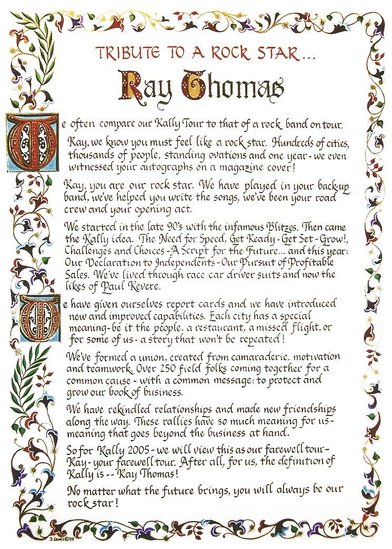 TRIBUTE TO A ROCK STAR...
Ray Thomas
We often compare our Rally Tour to that of a rock band on tour.
Ray, we know you must feel like a rock star. Hundreds of cities,
thousands of people, standing ovations and one year - we even
witnessed your autographs on a magazine cover!
Ray, you are our rock star. We have played in your back-up
band, we've helped you write the songs, we've been your road
crew and your opening act.
We started in the late 90's with the infamous Blitzes. Then came
the Rally idea. The Need for Speed, Get Ready - Get Set - Grow!,
Challenges and Choices - A Script for the Future... and this year:
Our Declaration to Independents - Our Pursuit of Profitable
Sales. We've lived through race car driver suits and now the
likes of Paul Revere.
We have given ourselves report cards and we have introduced
new and improved capabilities. Each city has a special
meaning - be it the people, a restaurant, a missed flight, or
for some of us - a story that won't be repeated!
We've formed a union, created from camaraderie, motivation
and teamwork. Over 250 field folks coming together for a
common cause - with a common message: to protect and
grow our book of business.
We have rekindled relationships and made new friendships
along the way. These rallies have so much meaning for us -
meaning that goes beyond the business at hand.
So for Rally 2005 - we will view this as our farewell tour -
Ray - your farewell tour. After all, for us, the definition of
Rally is -- Ray Thomas!
No matter what the future brings, you will always be our
rock star!